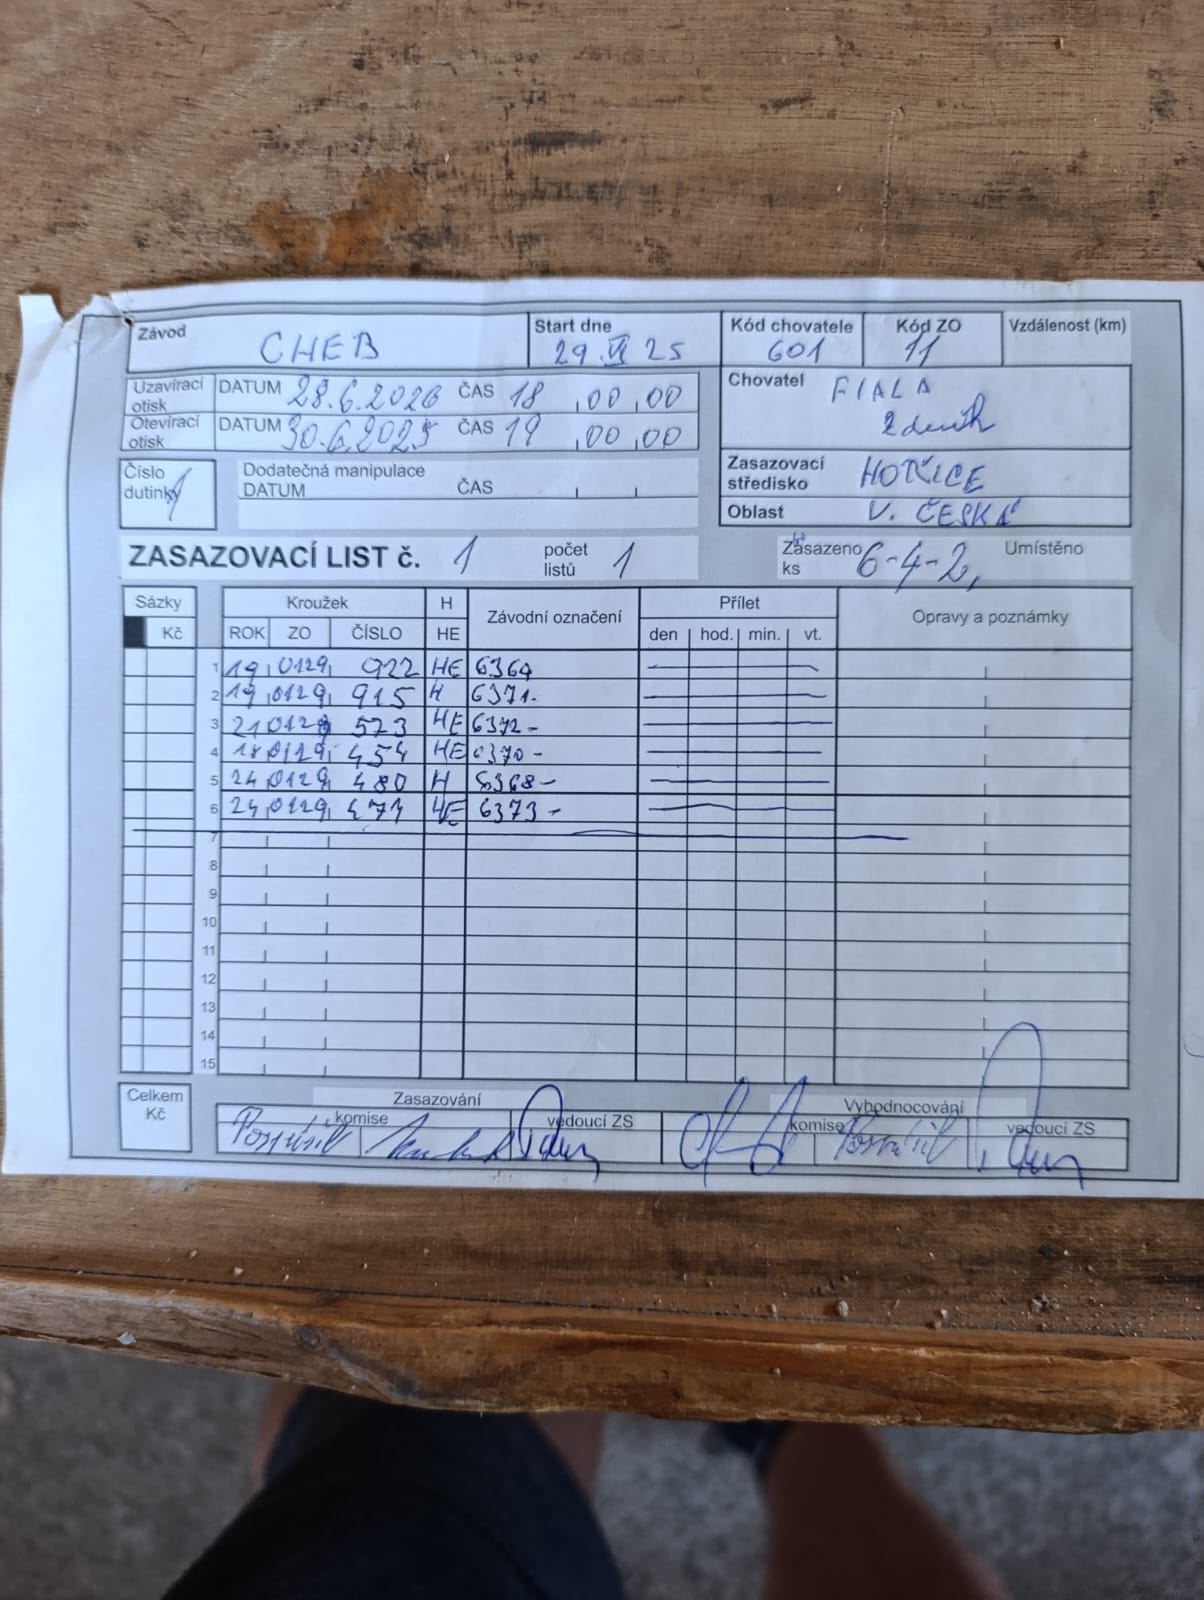 Závod CHEB Start dne 29.VI 25 Kód chovatele 601 Kód ZO 11 Vzdálenost (km)
Uzavírací otisk DATUM 28.6.2026 ČAS 18 ,00,00
Otevírací otisk DATUM 30.6.2025 ČAS 19 ,00,00
Chovatel FIALA
Zdeněk
Číslo dutinky 1
Dodatečná manipulace
DATUM ČAS
Zasazovací středisko HOŘICE
Oblast V. ČESKÁ
ZASAZOVACÍ LIST č. 1 počet listů 1 Zasazeno ks 6-4-2, Umístěno
Sázky Kroužek H Závodní označení Přílet Opravy a poznámky
Kč ROK ZO ČÍSLO HE den hod. min. vt.
1 19 0129 922 HE 6364
2 19 0129 915 H 6371-
3 21 0129 573 HE 6372-
4 18 0129 454 HE 6370-
5 24 0129 480 H 6368-
6 24 0129 471 HE 6373-
7
8
9
10
11
12
13
14
15
Celkem Kč
Zasazování Vyhodnocování
komise vedoucí ZS komise vedoucí ZS